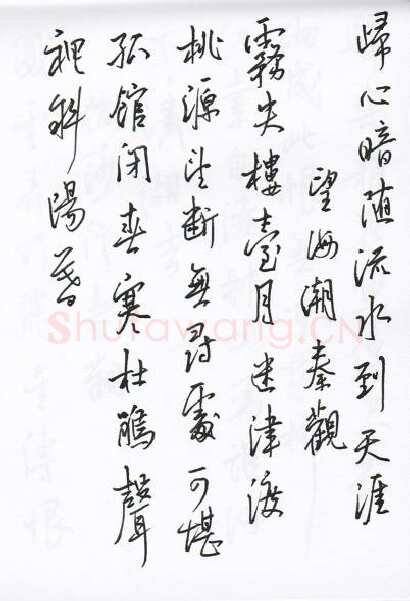 歸心暗随流水到天涯
望海潮秦觀
霧失樓臺月迷津渡
桃源望斷無尋處可堪
孤館閉春寒杜鵑聲
裡斜陽暮
Shufawang.CN